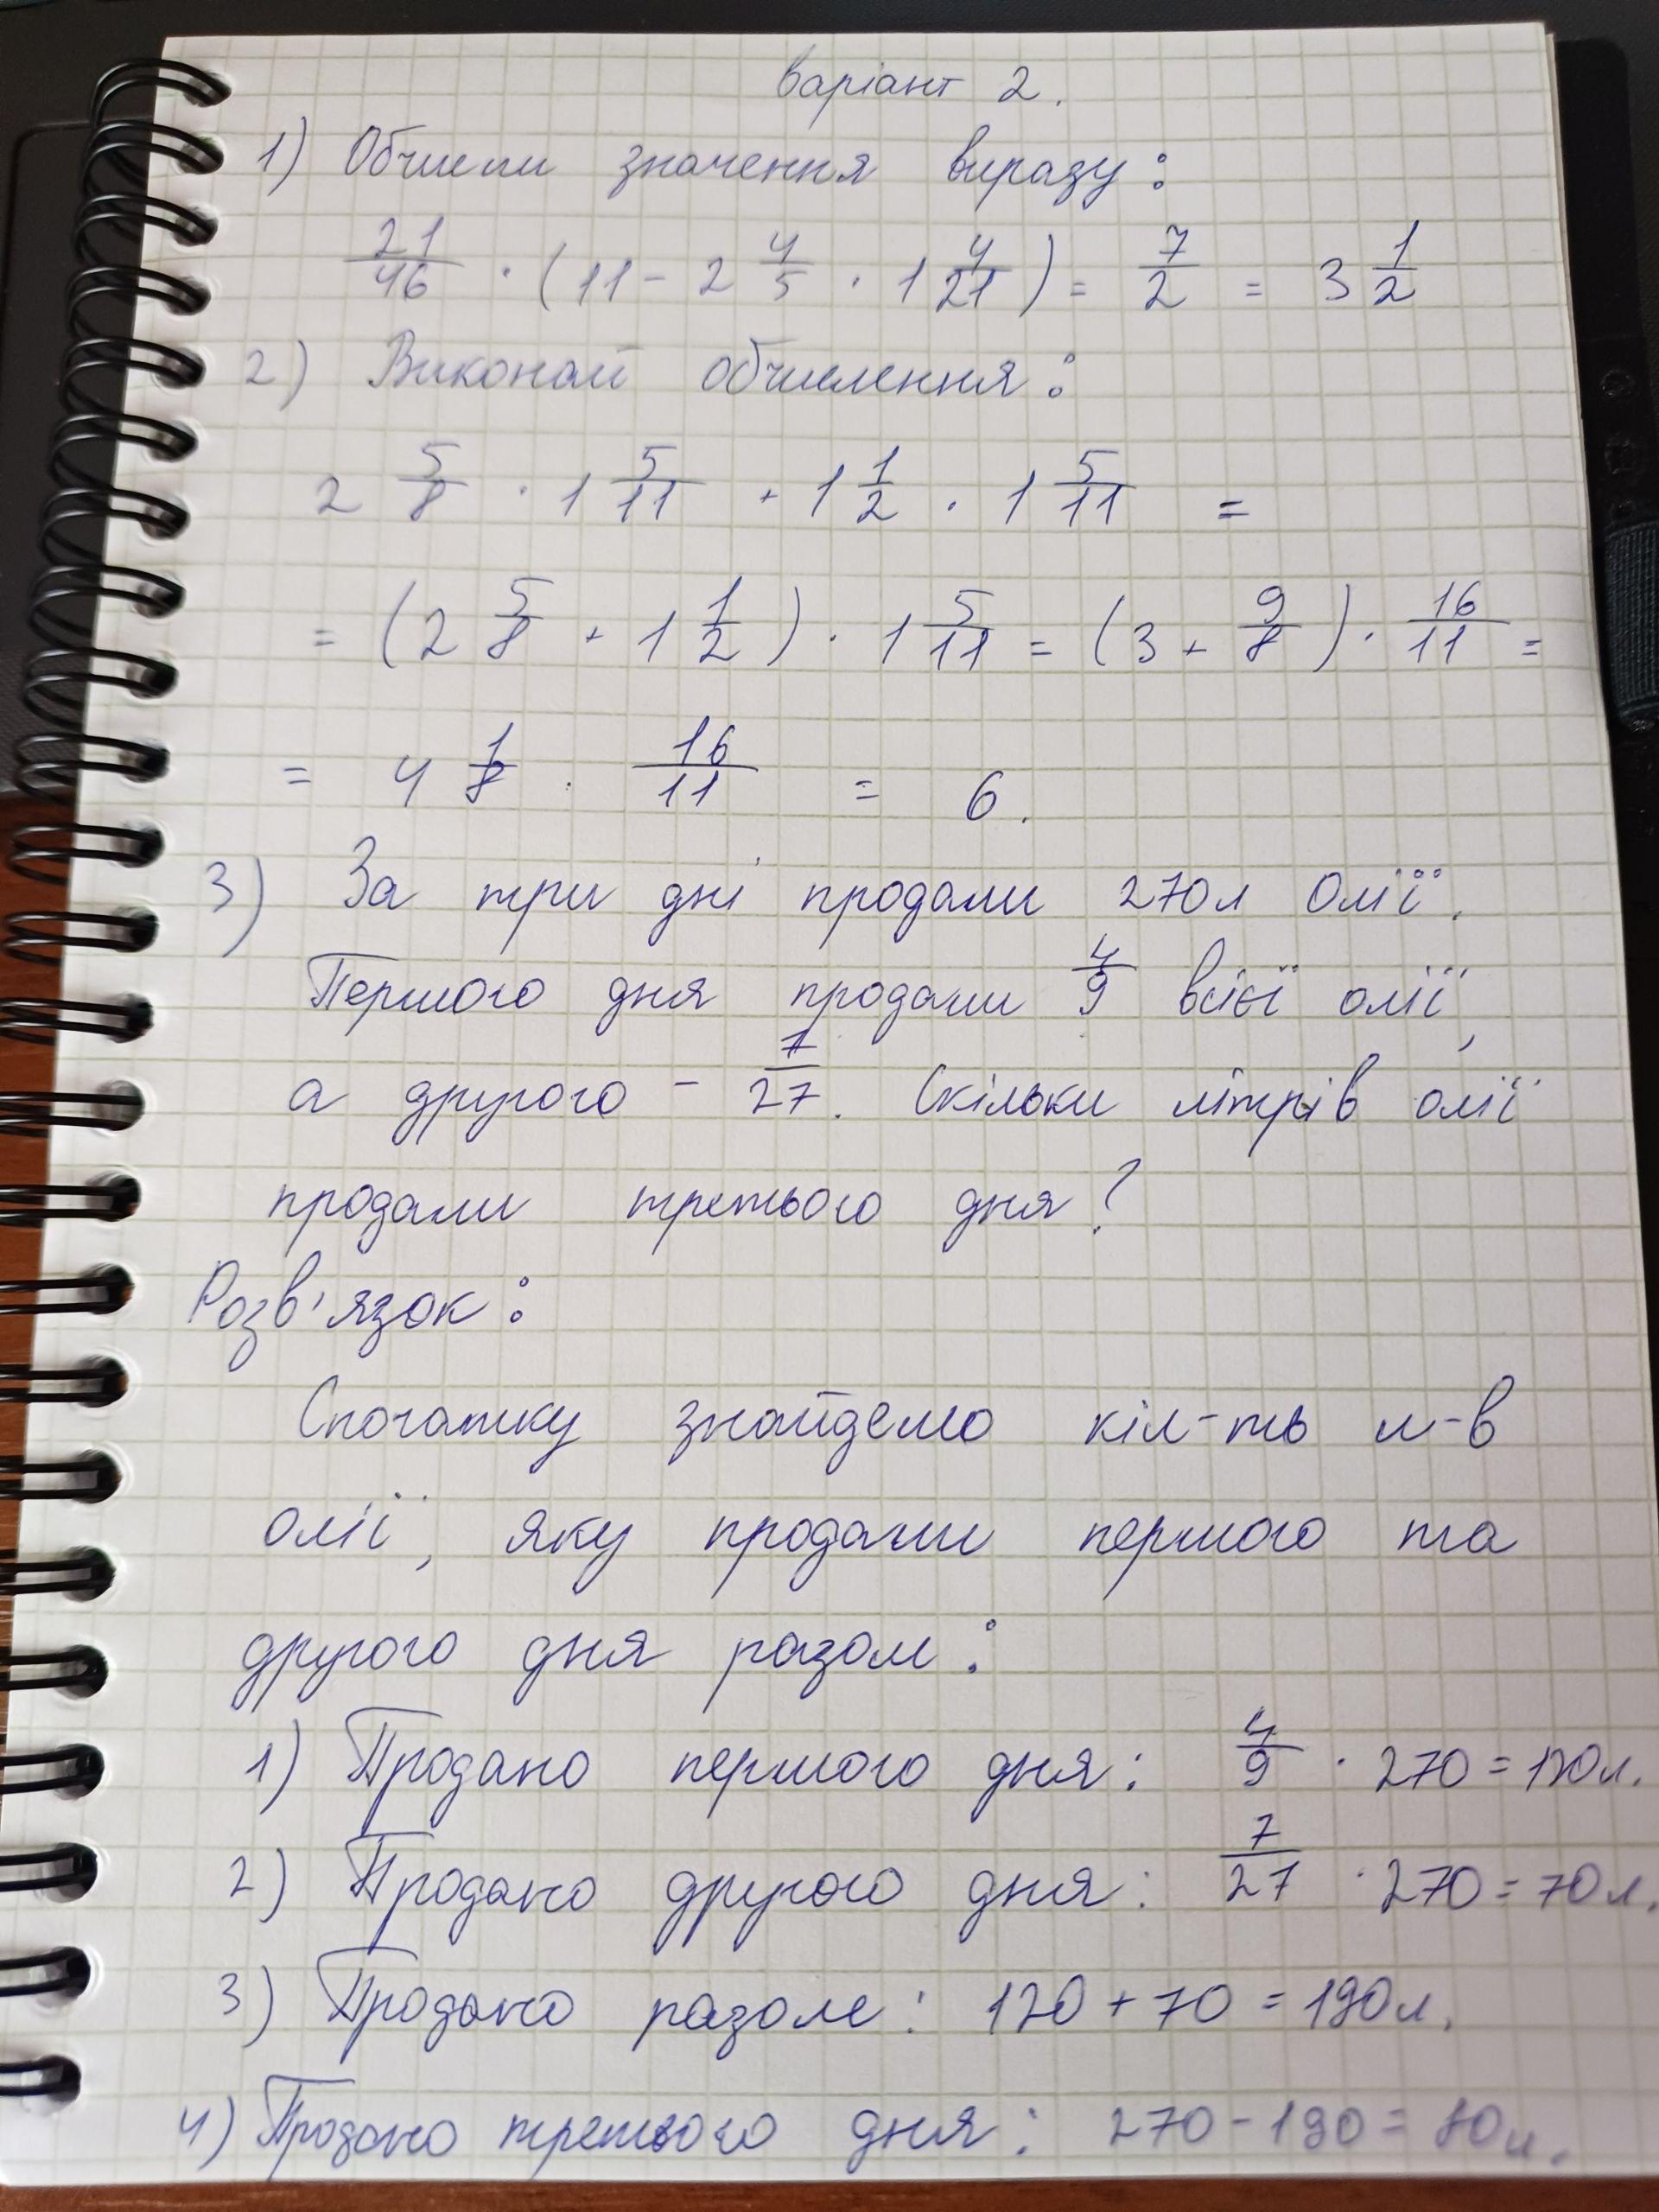 варіант 2.
1) Обчисли значення виразу:
21/46 · (11 - 2 4/5 · 1 4/21) = 7/2 = 3 1/2
2) Виконай обчислення:
2 5/8 · 1 5/11 + 1 1/2 · 1 5/11 =
= (2 5/8 + 1 1/2) · 1 5/11 = (3 + 9/8) · 16/11 =
= 4 1/8 · 16/11 = 6.
3) За три дні продали 270л Олії.
Першого дня продали 4/9 всієї олії,
а другого - 7/27. Скільки літрів олії
продали третього дня?
Розв'язок:
Спочатку знайдемо кіл-ть л-в
олії, яку продали першого та
другого дня разом:
1) Продано першого дня: 4/9 · 270 = 120л.
2) Продано другого дня: 7/27 · 270 = 70л.
3) Продано разом: 120 + 70 = 190л.
4) Продано третього дня: 270 - 190 = 80л.